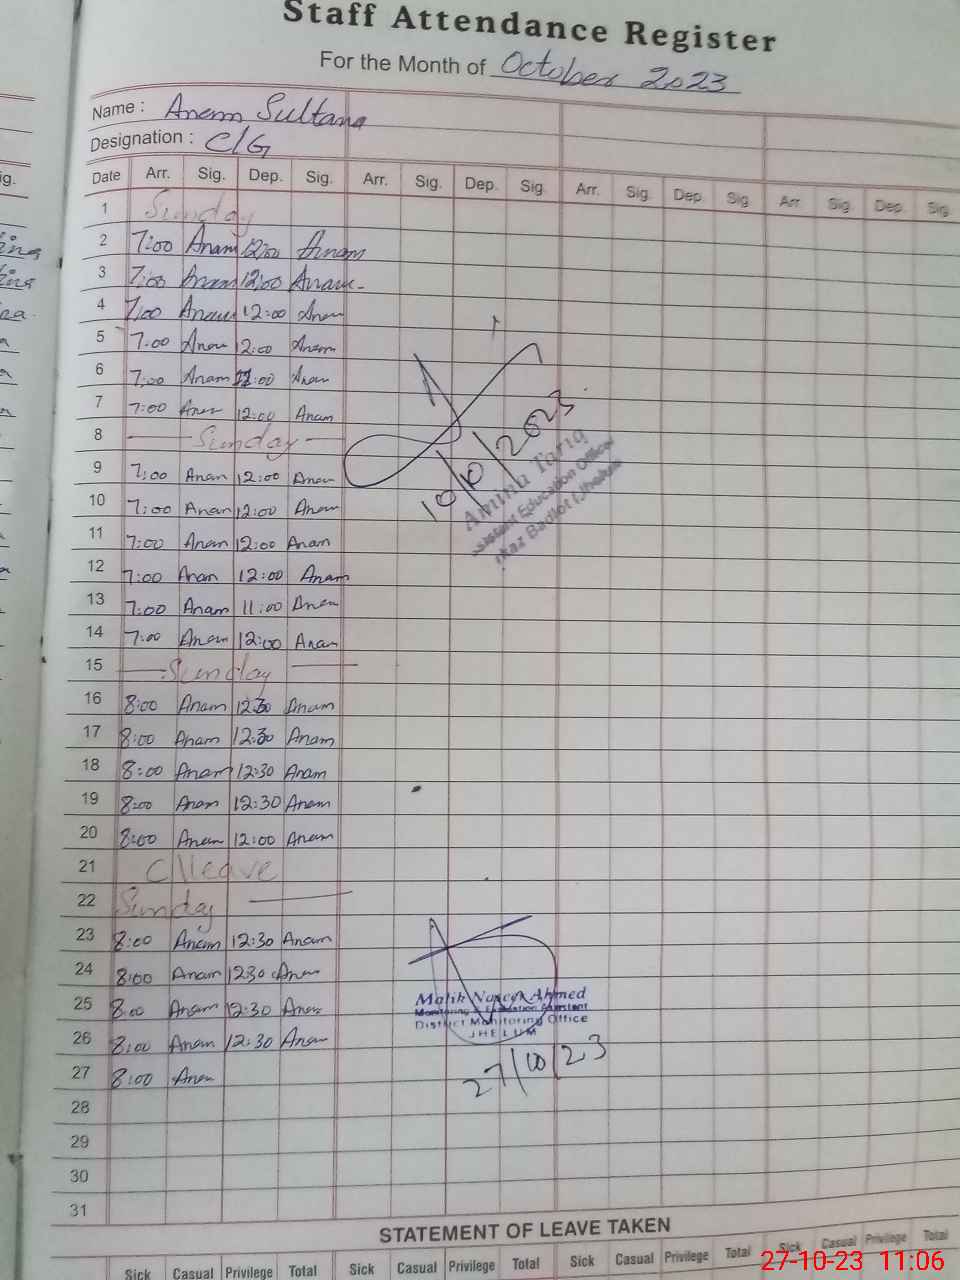 Staff Attendance Register
For the Month of October 2023
Name : Anam Sultana
Designation : C/G
Date Arr. Sig. Dep. Sig. Arr. Sig. Dep. Sig. Arr. Sig. Dep. Sig. Arr. Sig. Dep. Sig.
1 Sunday
2 7:00 Anam 12:00 Anam
3 7:00 Anam 12:00 Anam
4 7:00 Anam 12:00 Anam
5 7:00 Anam 12:00 Anam
6 7:00 Anam :00 Anam
7 7:00 Anam 12:00 Anam
8 Sunday
9 7:00 Anam 12:00 Anam
10 7:00 Anam 12:00 Anam
11 7:00 Anam 12:00 Anam
12 7:00 Anam 12:00 Anam
13 7:00 Anam 11:00 Anam
14 7:00 Anam 12:00 Anam
15 Sunday
16 8:00 Anam 12:30 Anam
17 8:00 Anam 12:30 Anam
18 8:00 Anam 12:30 Anam
19 8:00 Anam 12:30 Anam
20 8:00 Anam 12:00 Anam
21 C/leave
22 Sunday
23 8:00 Anam 12:30 Anam
24 8:00 Anam 1230 Anam
25 8:00 Anam 12:30 Anam
26 8:00 Anam 12:30 Anam
27 8:00 Anam
28
29
30
31
10/10/2023
Tariq
Education Officer
Malik Ahmed
Monitoring Assistant
District Monitoring Office
JHELUM
27/10/23
STATEMENT OF LEAVE TAKEN
Sick Casual Privilege Total Sick Casual Privilege Total Sick Casual Privilege Total Sick Casual Privilege Total
27-10-23 11:06